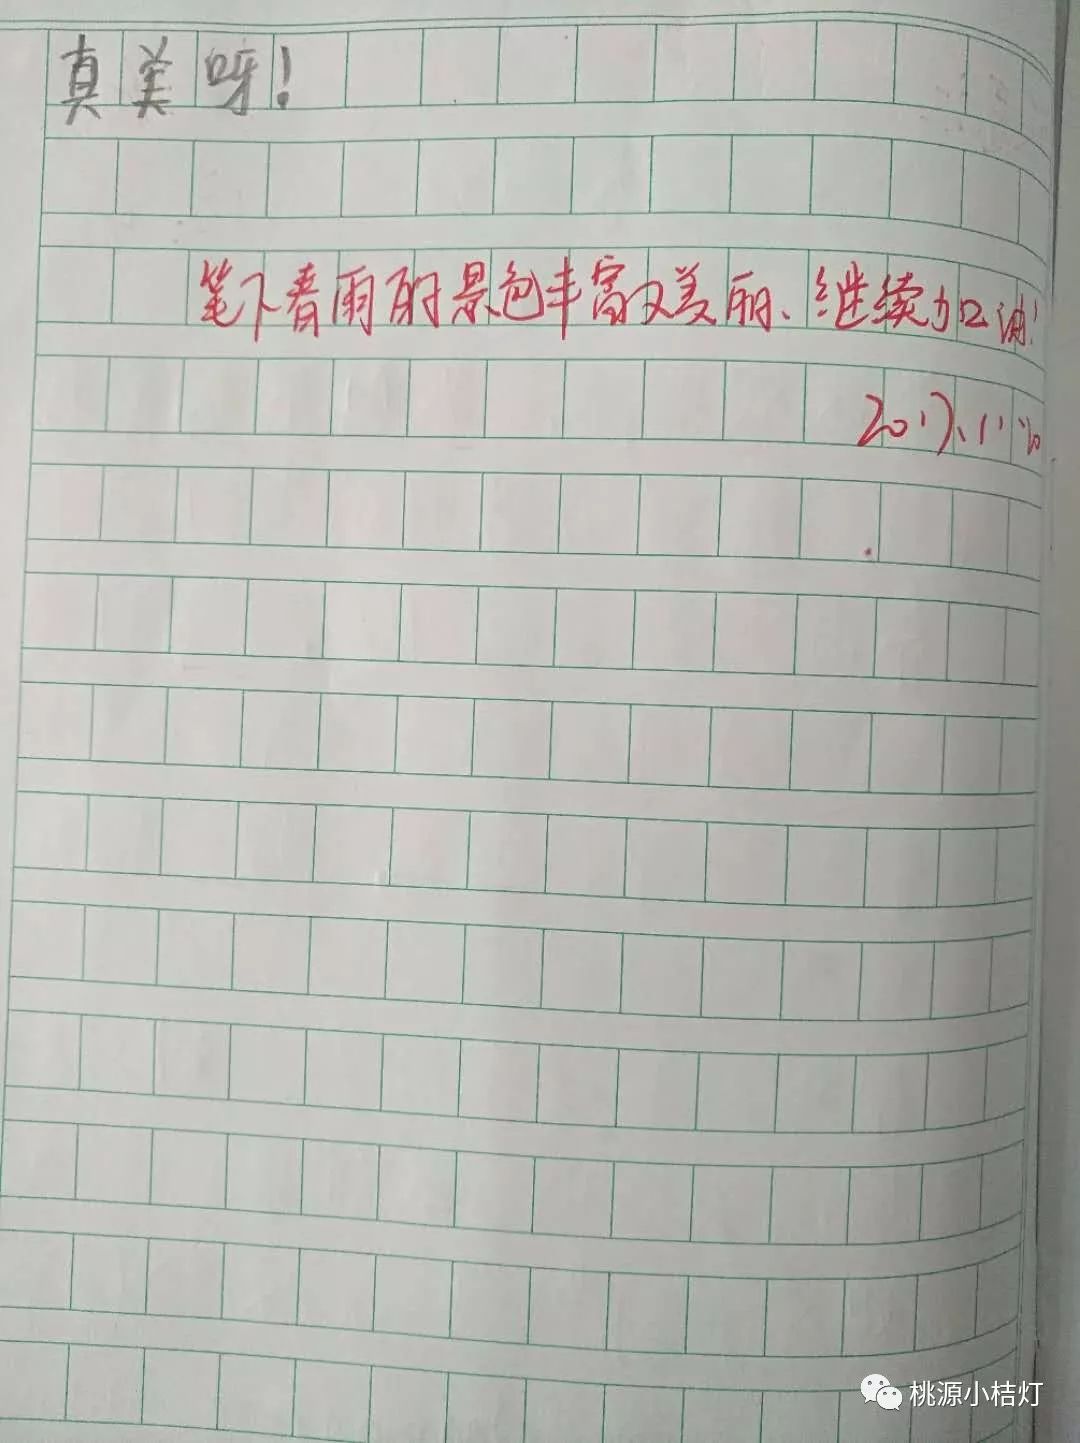 真美呀!
笔下春雨的景色丰富又美丽、继续加油!
2017.11.
桃源小桔灯